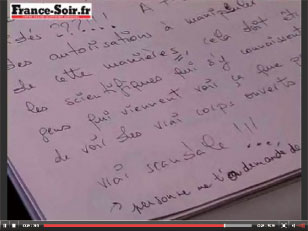 France-Soir.fr
dés ???!!! A
des autorisations à
de cette manière, cela doit
les scientifiques qui s'y connaissent
gens qui viennent voir ça que
de voir des vrai corps ouverts
vrai scandale !!!
→ personne ne t'a demandé de